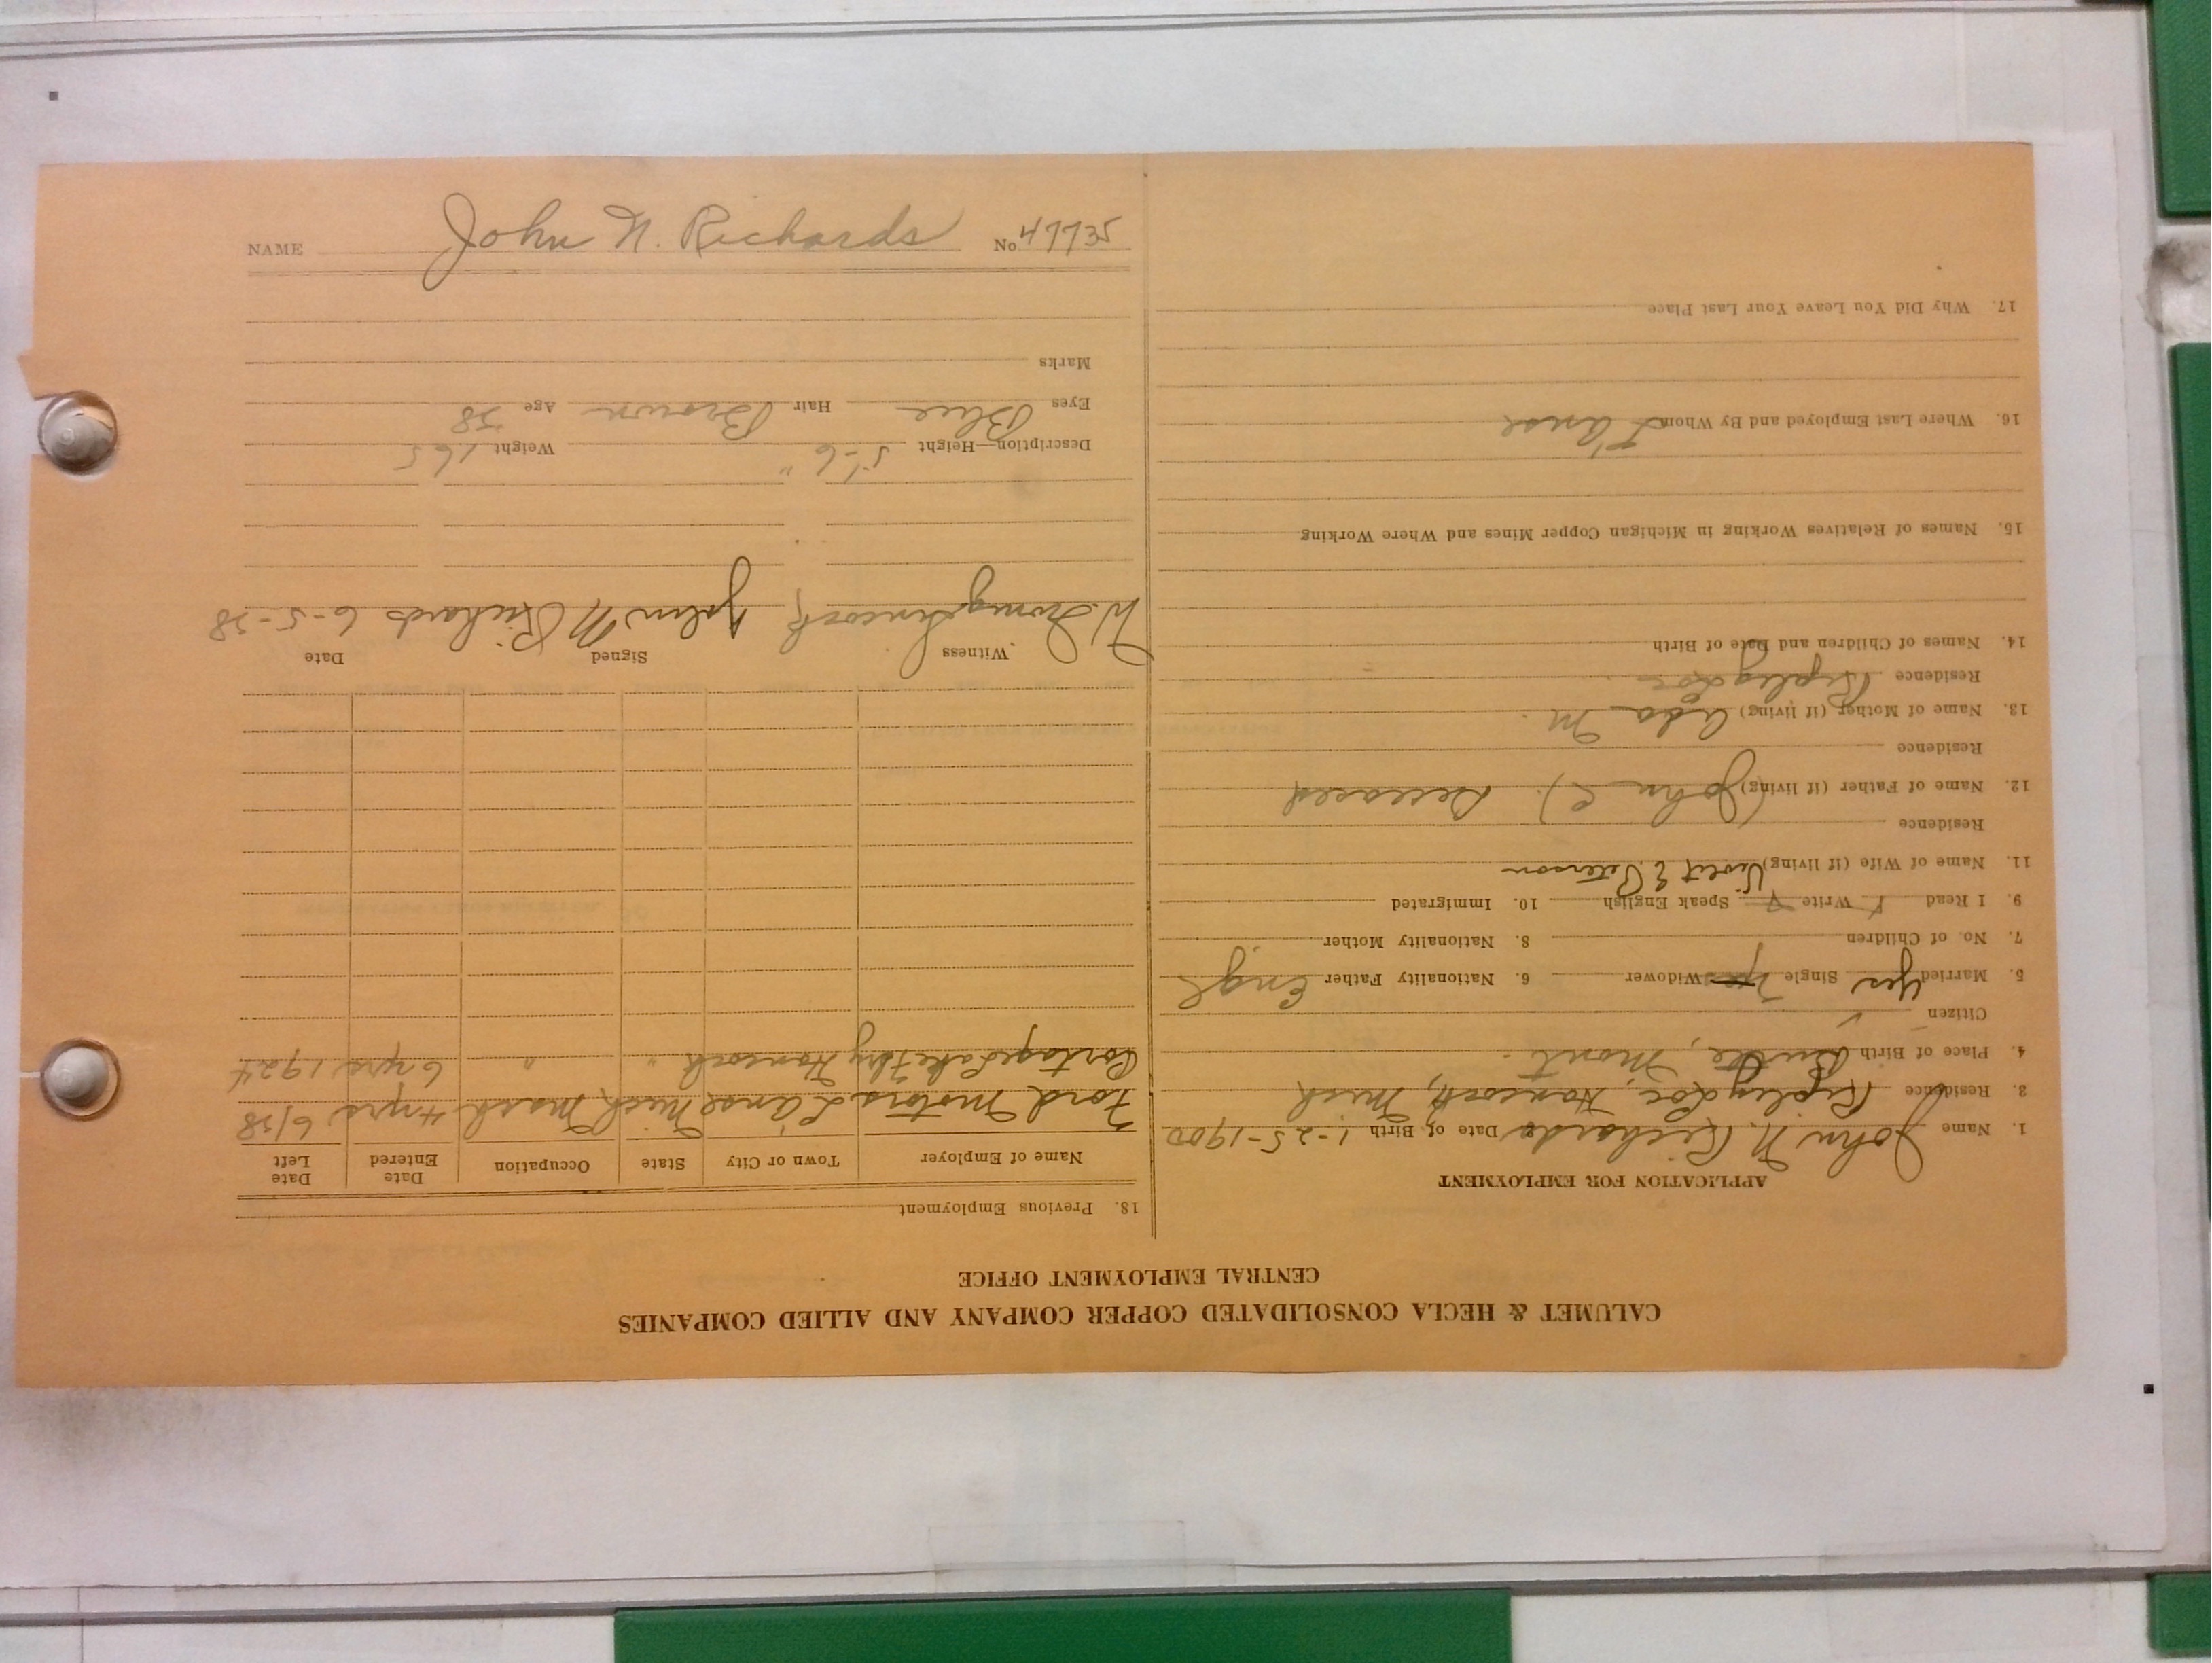 NAME John N. Richards No. 47735
CALUMET & HECLA CONSOLIDATED COPPER COMPANY AND ALLIED COMPANIES
CENTRAL EMPLOYMENT OFFICE
APPLICATION FOR EMPLOYMENT
1. Name John N. Richards Date of Birth 1-25-1900
2. Residence Ripley Loc, Hancock, Mich
4. Place of Birth Butte, Mont.
Citizen ✓
5. Married Yes Single Widower 6. Nationality Father Engl
7. No. of Children 8. Nationality Mother
9. I Read ✓ Write ✓ Speak English 10. Immigrated
11. Name of Wife (if living) Violet E Peterson
Residence
12. Name of Father (if living) (John C). Deceased
Residence
13. Name of Mother (if living) Ada M.
Residence Ripley Loc
14. Names of Children and Date of Birth
15. Names of Relatives Working in Michigan Copper Mines and Where Working
16. Where Last Employed and By Whom L'anse
17. Why Did You Leave Your Last Place
18. Previous Employment
Name of Employer Town or City State Occupation Date Entered Date Left
Ford Motors L'anse Mich Mach 4 yrs 6/38
Portage Lake Fdry Hancock " " 6 yrs 1924
Witness Signed Date
John N Richards 6-5-38
Description—Height 5'-6" Weight 165
Eyes Blue Hair Brown Age 38
Marks